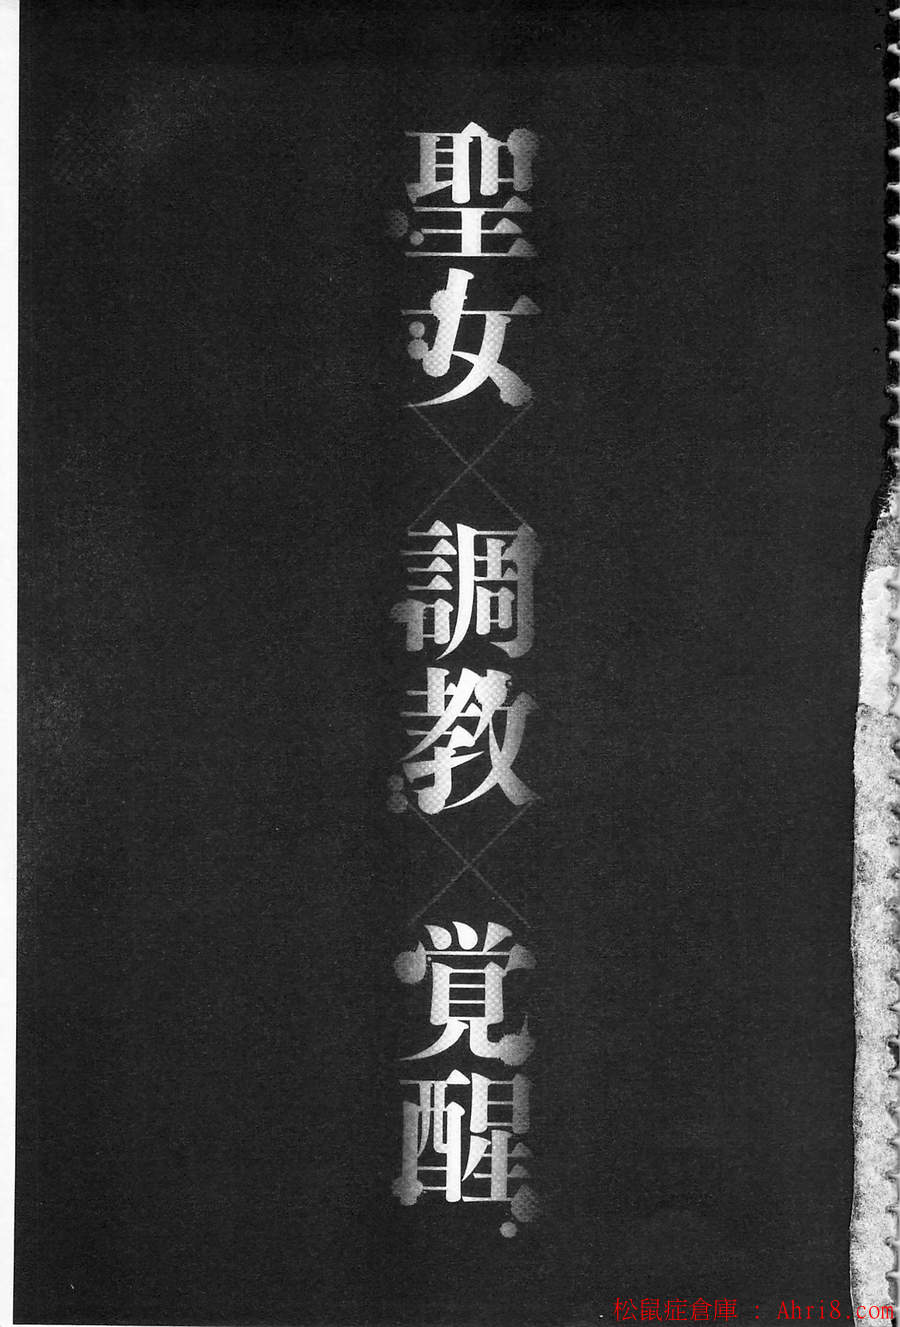 聖女×調教×覚醒
松鼠症倉庫 : Ahri8.com